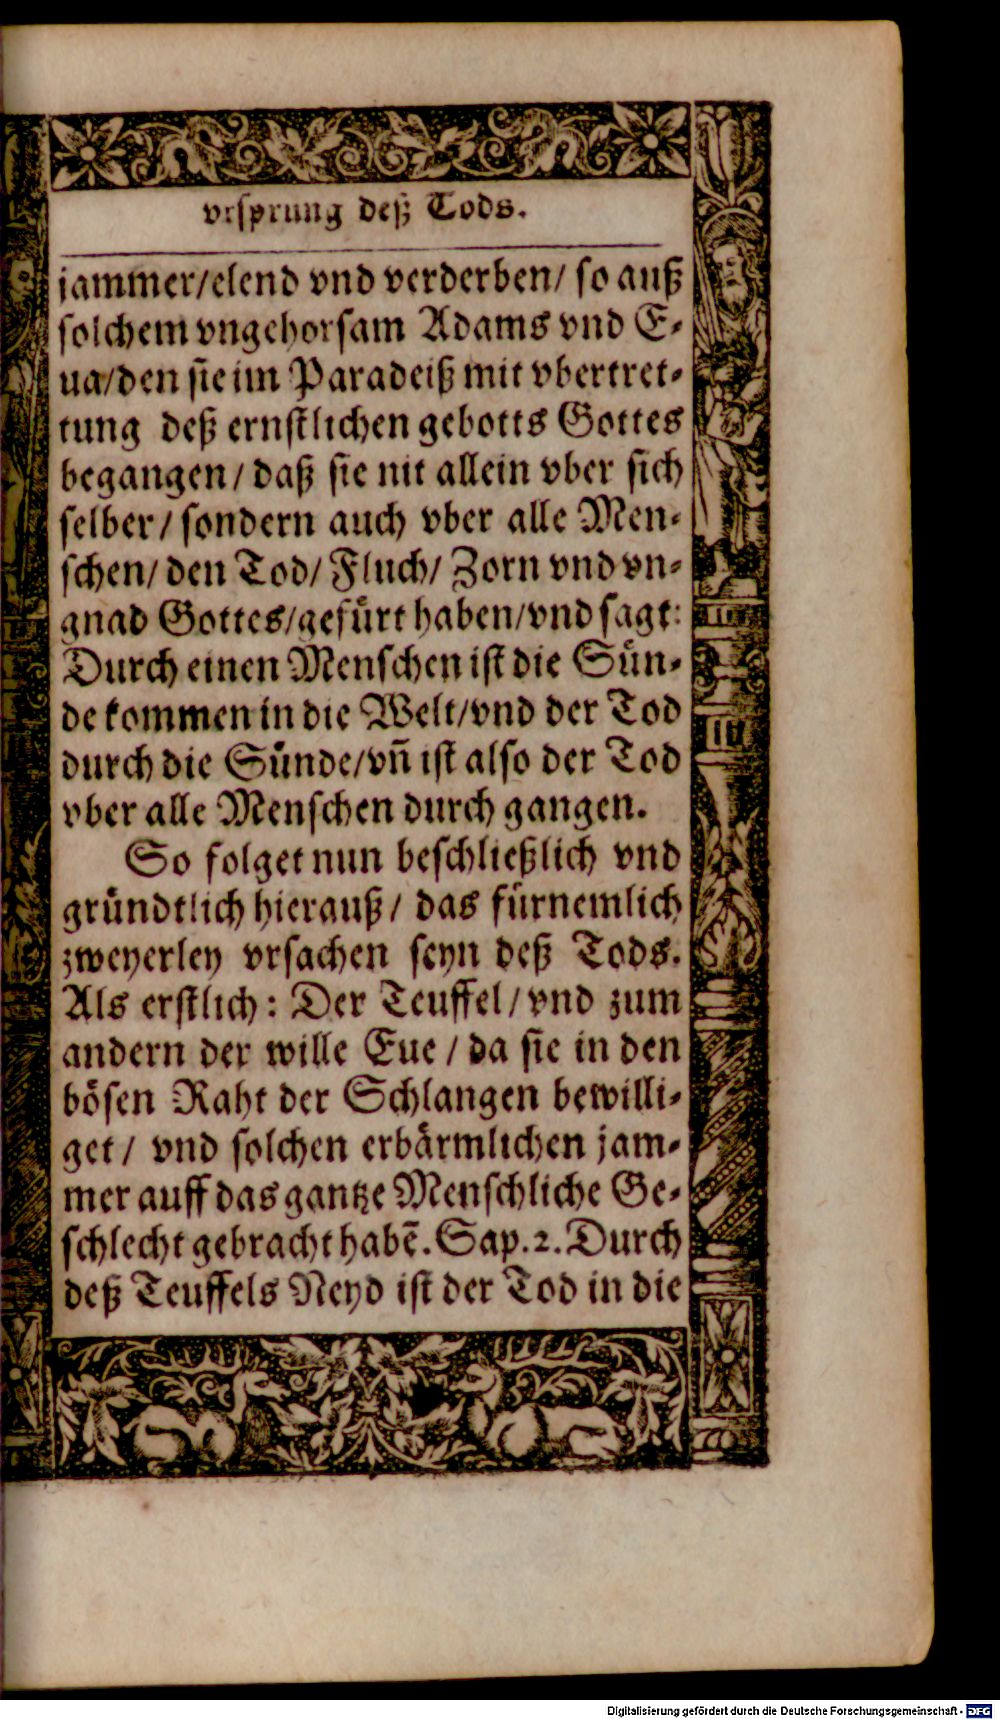 vrsprung deß Tods.
jammer/elend vnd verderben/ so auß
solchem vngehorsam Adams vnd E-
ua/den sie im Paradeiß mit vbertret-
tung deß ernstlichen gebotts Gottes
begangen/ daß sie nit allein vber sich
selber/ sondern auch vber alle Men-
schen/ den Tod/ Fluch/ Zorn vnd vn-
gnad Gottes/gefürt haben/vnd sagt:
Durch einen Menschen ist die Sün-
de kommen in die Welt/vnd der Tod
durch die Sünde/vñ ist also der Tod
vber alle Menschen durch gangen.
So folget nun beschließlich vnd
gründtlich hierauß/ das fürnemlich
zweyerley vrsachen seyn deß Tods.
Als erstlich: Der Teuffel/ vnd zum
andern der wille Eue/ da sie in den
bösen Raht der Schlangen bewilli-
get/ vnd solchen erbärmlichen jam-
mer auff das gantze Menschliche Ge-
schlecht gebracht habẽ. Sap. 2. Durch
deß Teuffels Neyd ist der Tod in die
Digitalisierung gefördert durch die Deutsche Forschungsgemeinschaft - DFG